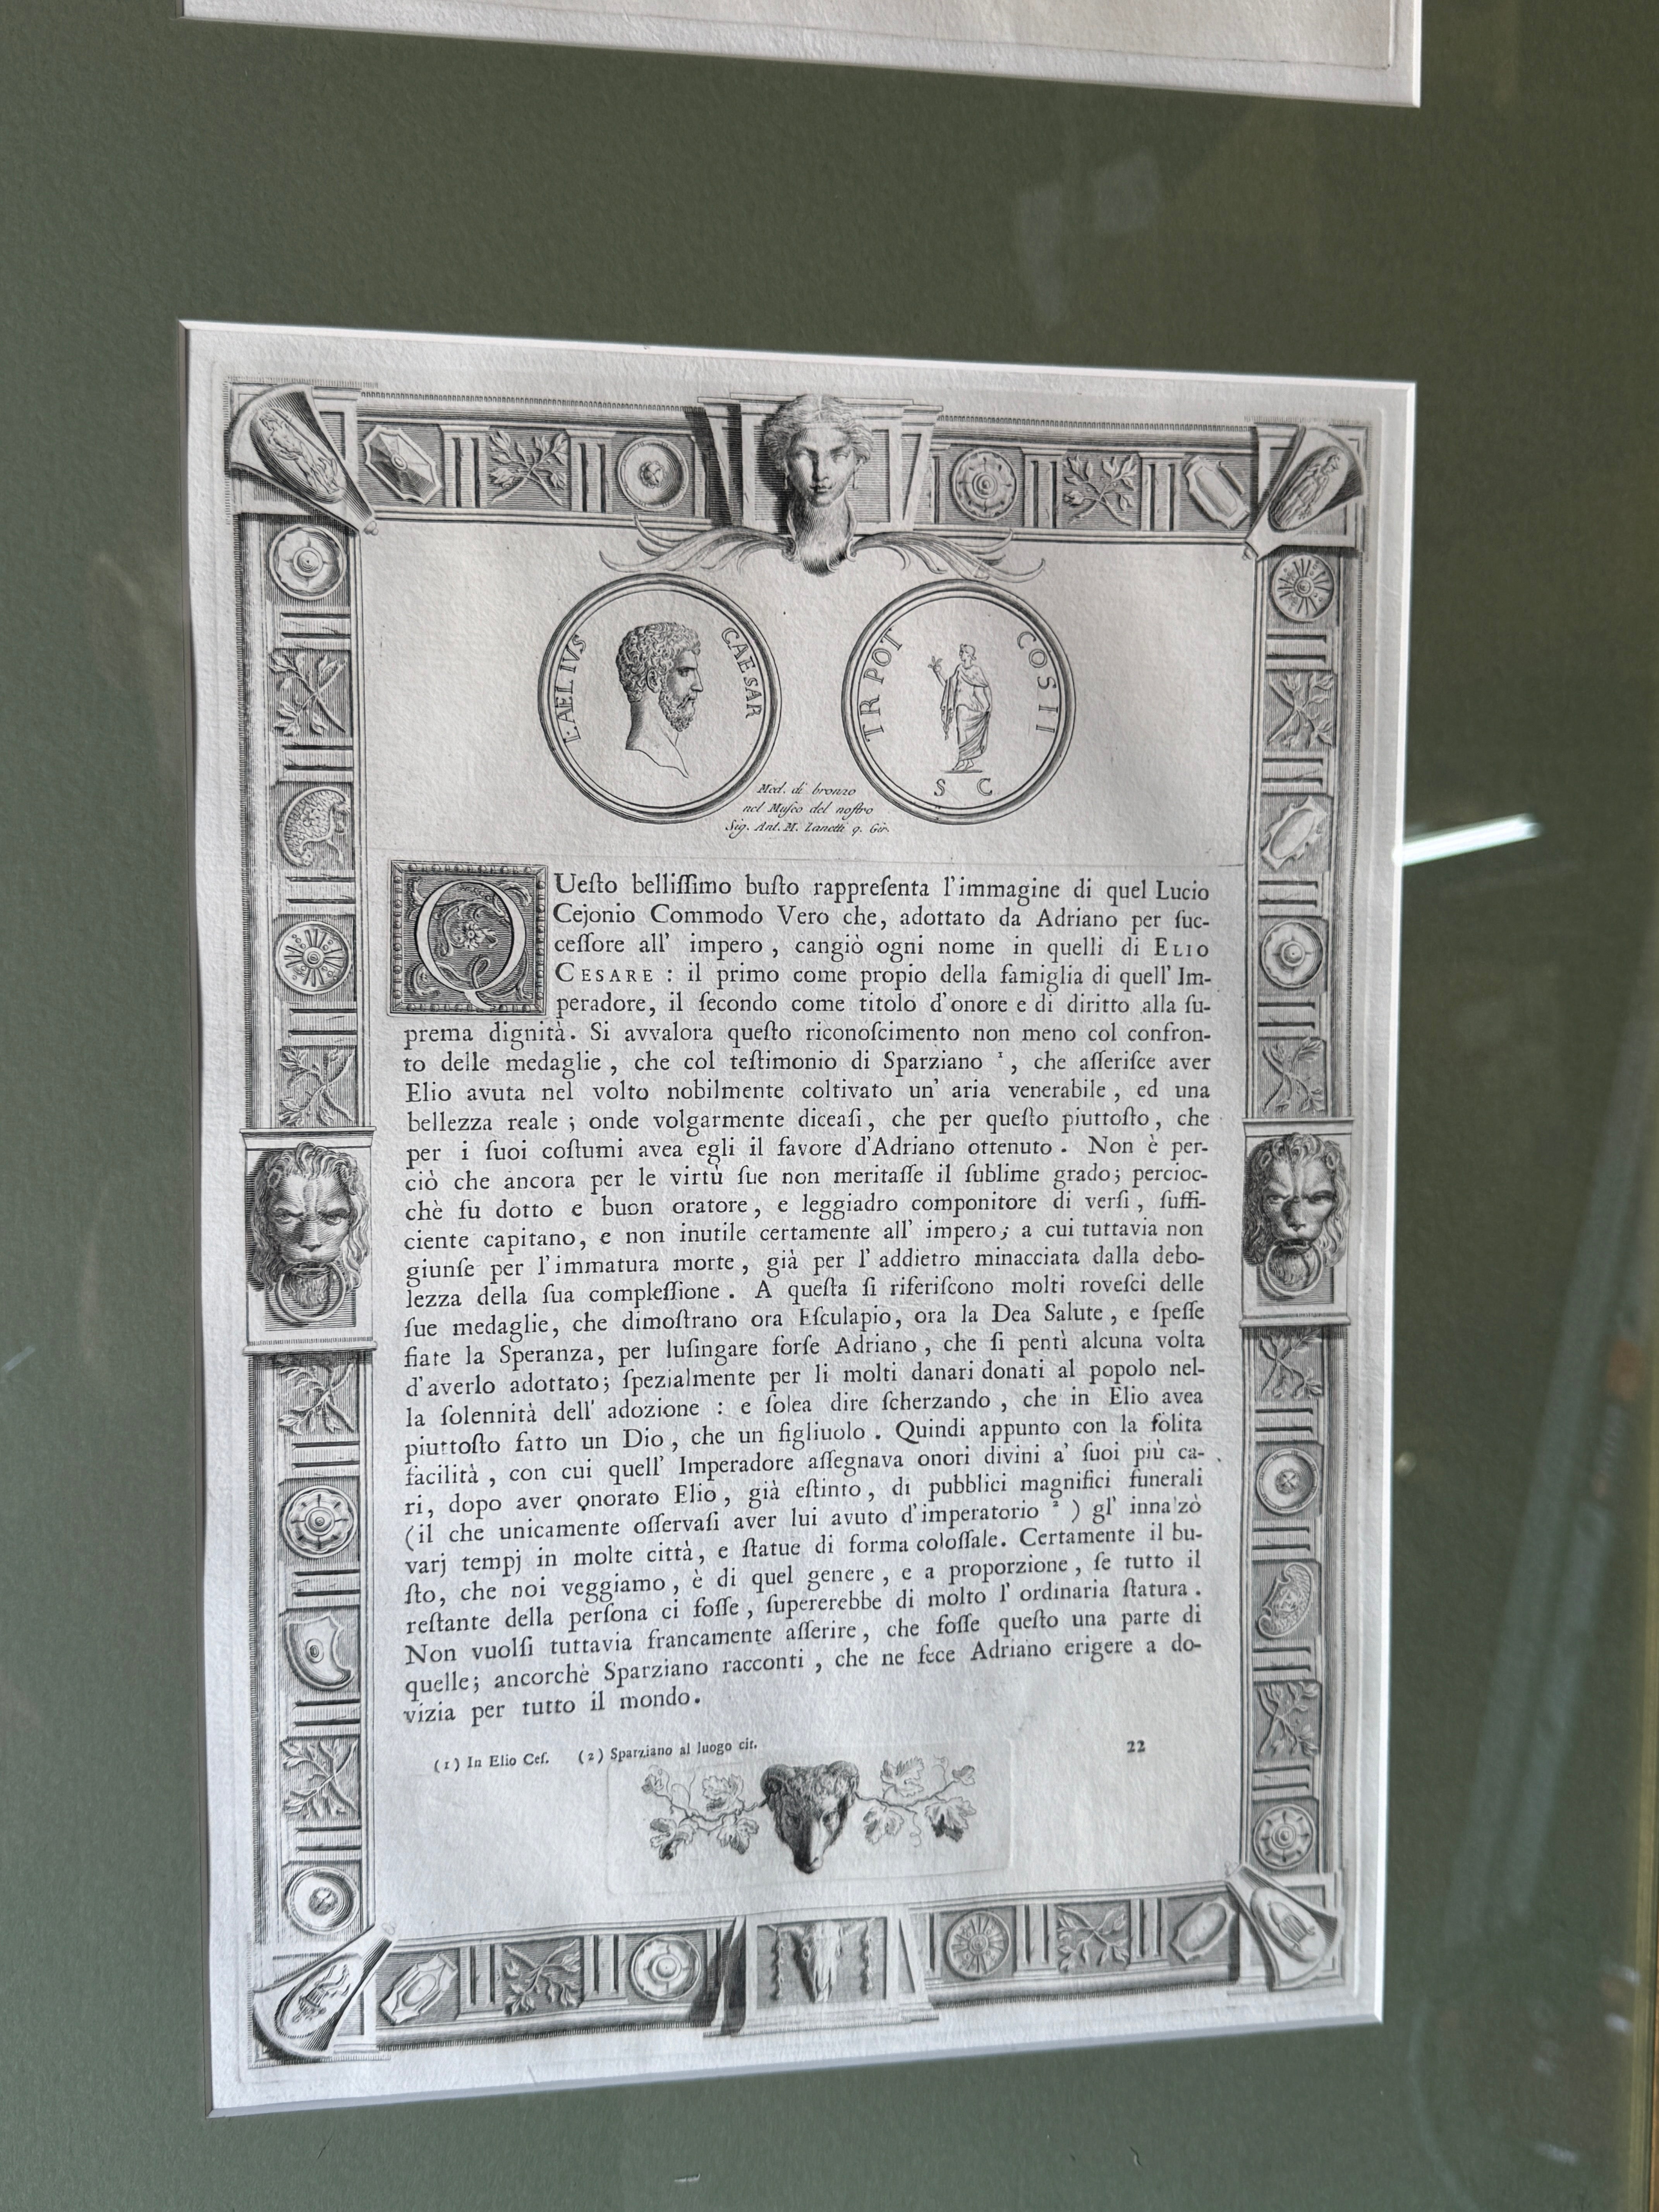 L·AELIVS CAESAR
TR POT COS II
S C
Med. di bronzo
nel Muſeo del noſtro
Sig. Ant. M. Zanetti q. Gir.
QUeſto belliſſimo buſto rappreſenta l'immagine di quel Lucio
Cejonio Commodo Vero che, adottato da Adriano per ſuc-
ceſſore all' impero, cangiò ogni nome in quelli di ELIO
CESARE: il primo come propio della famiglia di quell' Im-
peradore, il ſecondo come titolo d'onore e di diritto alla ſu-
prema dignità. Si avvalora queſto riconoſcimento non meno col confron-
to delle medaglie, che col teſtimonio di Sparziano ¹, che aſſeriſce aver
Elio avuta nel volto nobilmente coltivato un' aria venerabile, ed una
bellezza reale; onde volgarmente diceaſi, che per queſto piuttoſto, che
per i ſuoi coſtumi avea egli il favore d'Adriano ottenuto. Non è per-
ciò che ancora per le virtù ſue non meritaſſe il ſublime grado; percioc-
chè fu dotto e buon oratore, e leggiadro componitore di verſi, ſuffi-
ciente capitano, e non inutile certamente all' impero; a cui tuttavia non
giunſe per l'immatura morte, già per l' addietro minacciata dalla debo-
lezza della ſua compleſſione. A queſta ſi riferiſcono molti roveſci delle
ſue medaglie, che dimoſtrano ora Eſculapio, ora la Dea Salute, e ſpeſſe
fiate la Speranza, per luſingare forſe Adriano, che ſi pentì alcuna volta
d'averlo adottato; ſpezialmente per li molti danari donati al popolo nel-
la ſolennità dell' adozione: e ſolea dire ſcherzando, che in Elio avea
piuttoſto fatto un Dio, che un figliuolo. Quindi appunto con la ſolita
facilità, con cui quell' Imperadore aſſegnava onori divini a' ſuoi più ca-
ri, dopo aver onorato Elio, già eſtinto, di pubblici magnifici funerali
(il che unicamente oſſervaſi aver lui avuto d'imperatorio ²) gl' innalzò
varj tempj in molte città, e ſtatue di forma coloſſale. Certamente il bu-
ſto, che noi veggiamo, è di quel genere, e a proporzione, ſe tutto il
reſtante della perſona ci foſſe, ſupererebbe di molto l' ordinaria ſtatura.
Non vuolſi tuttavia francamente aſſerire, che foſſe queſto una parte di
quelle; ancorchè Sparziano racconti, che ne fece Adriano erigere a do-
vizia per tutto il mondo.
(1) In Elio Ceſ. (2) Sparziano al luogo cit.
22